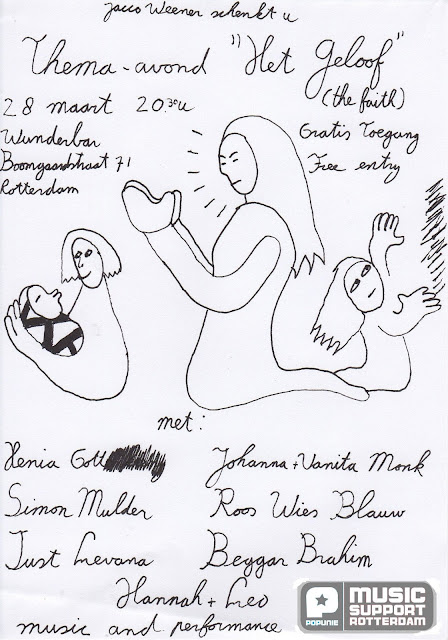 Jacco Weener schenkt u
Thema-avond "Het Geloof"
(the faith)
28 maart 20.30u
Wunderbar
Boomgaardstraat 71
Rotterdam
Gratis Toegang
Free entry
met:
Xenia Gott
Johanna + Vanita Monk
Simon Mulder
Roos Wies Blauw
Just Levana
Beggar Brahim
Hannah + Leo
music and performance
P POPUNIE
MUSIC
SUPPORT
ROTTERDAM